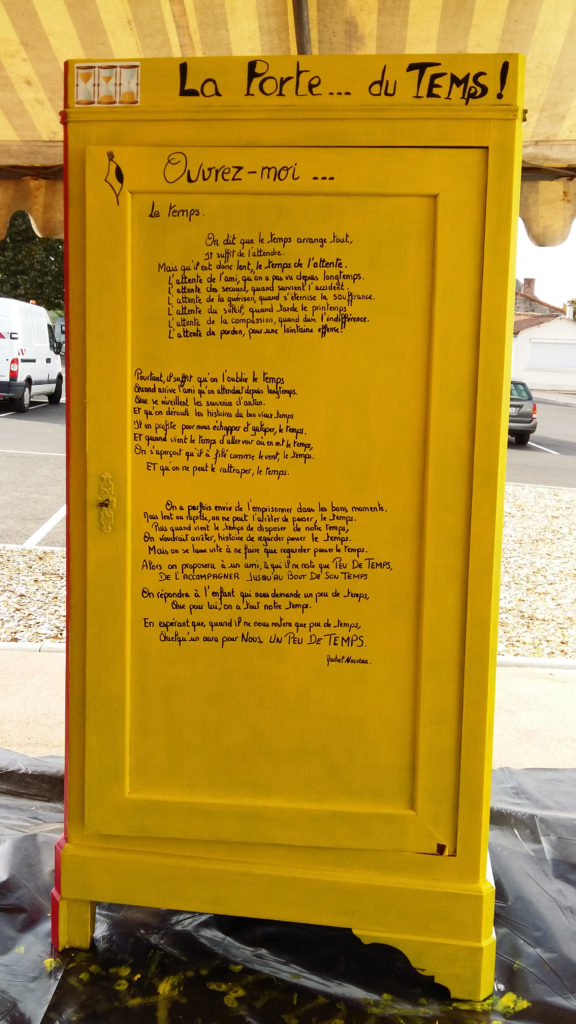 La Porte... du TEMPS !
Ouvrez-moi ...
Le temps.
On dit que le temps arrange tout,
Il suffit de l'attendre.
Mais qu'il est donc lent, le temps de l'attente.
L'attente de l'ami, qu'on a pas vu depuis longtemps.
L'attente des secours, quand survient l'accident.
L'attente de la guérison, quand s'éternise la souffrance.
L'attente du soleil, quand tarde le printemps
L'attente de la compassion, quand dure l'indifférence.
L'attente du pardon, pour une lointaine offense!
Pourtant, il suffit qu'on l'oublie le temps
Quand arrive l'ami qu'on attendait depuis longtemps.
Que se réveillent les souvenirs d'antan.
Et qu'on déroule les histoires du bon vieux temps
Il en profite pour nous échapper et galoper, le temps.
Et quand vient le temps d'aller voir où en est le temps,
On s'aperçoit qu'il à filé comme le vent, le temps.
Et qu'on ne peut le rattraper, le temps.
On a parfois envie de l'emprisonner dans les bons moments.
Mais lent ou rapide, on ne peut l'arrêter de passer, le temps.
Puis quand vient le temps de disposer de notre temps,
On voudrait arrêter, histoire de regarder passer le temps.
Mais on se lasse vite à ne faire que regarder passer le temps.
Alors on proposera à un ami, à qui il ne reste que PEU DE TEMPS,
DE L'ACCOMPAGNER JUSQU'AU BOUT DE SON TEMPS
On répondra à l'enfant qui nous demande un peu de temps,
Que pour lui, on a tout notre temps.
En espérant que, quand il ne nous restera que peu de temps,
Quelqu'un aura pour NOUS, UN PEU DE TEMPS.